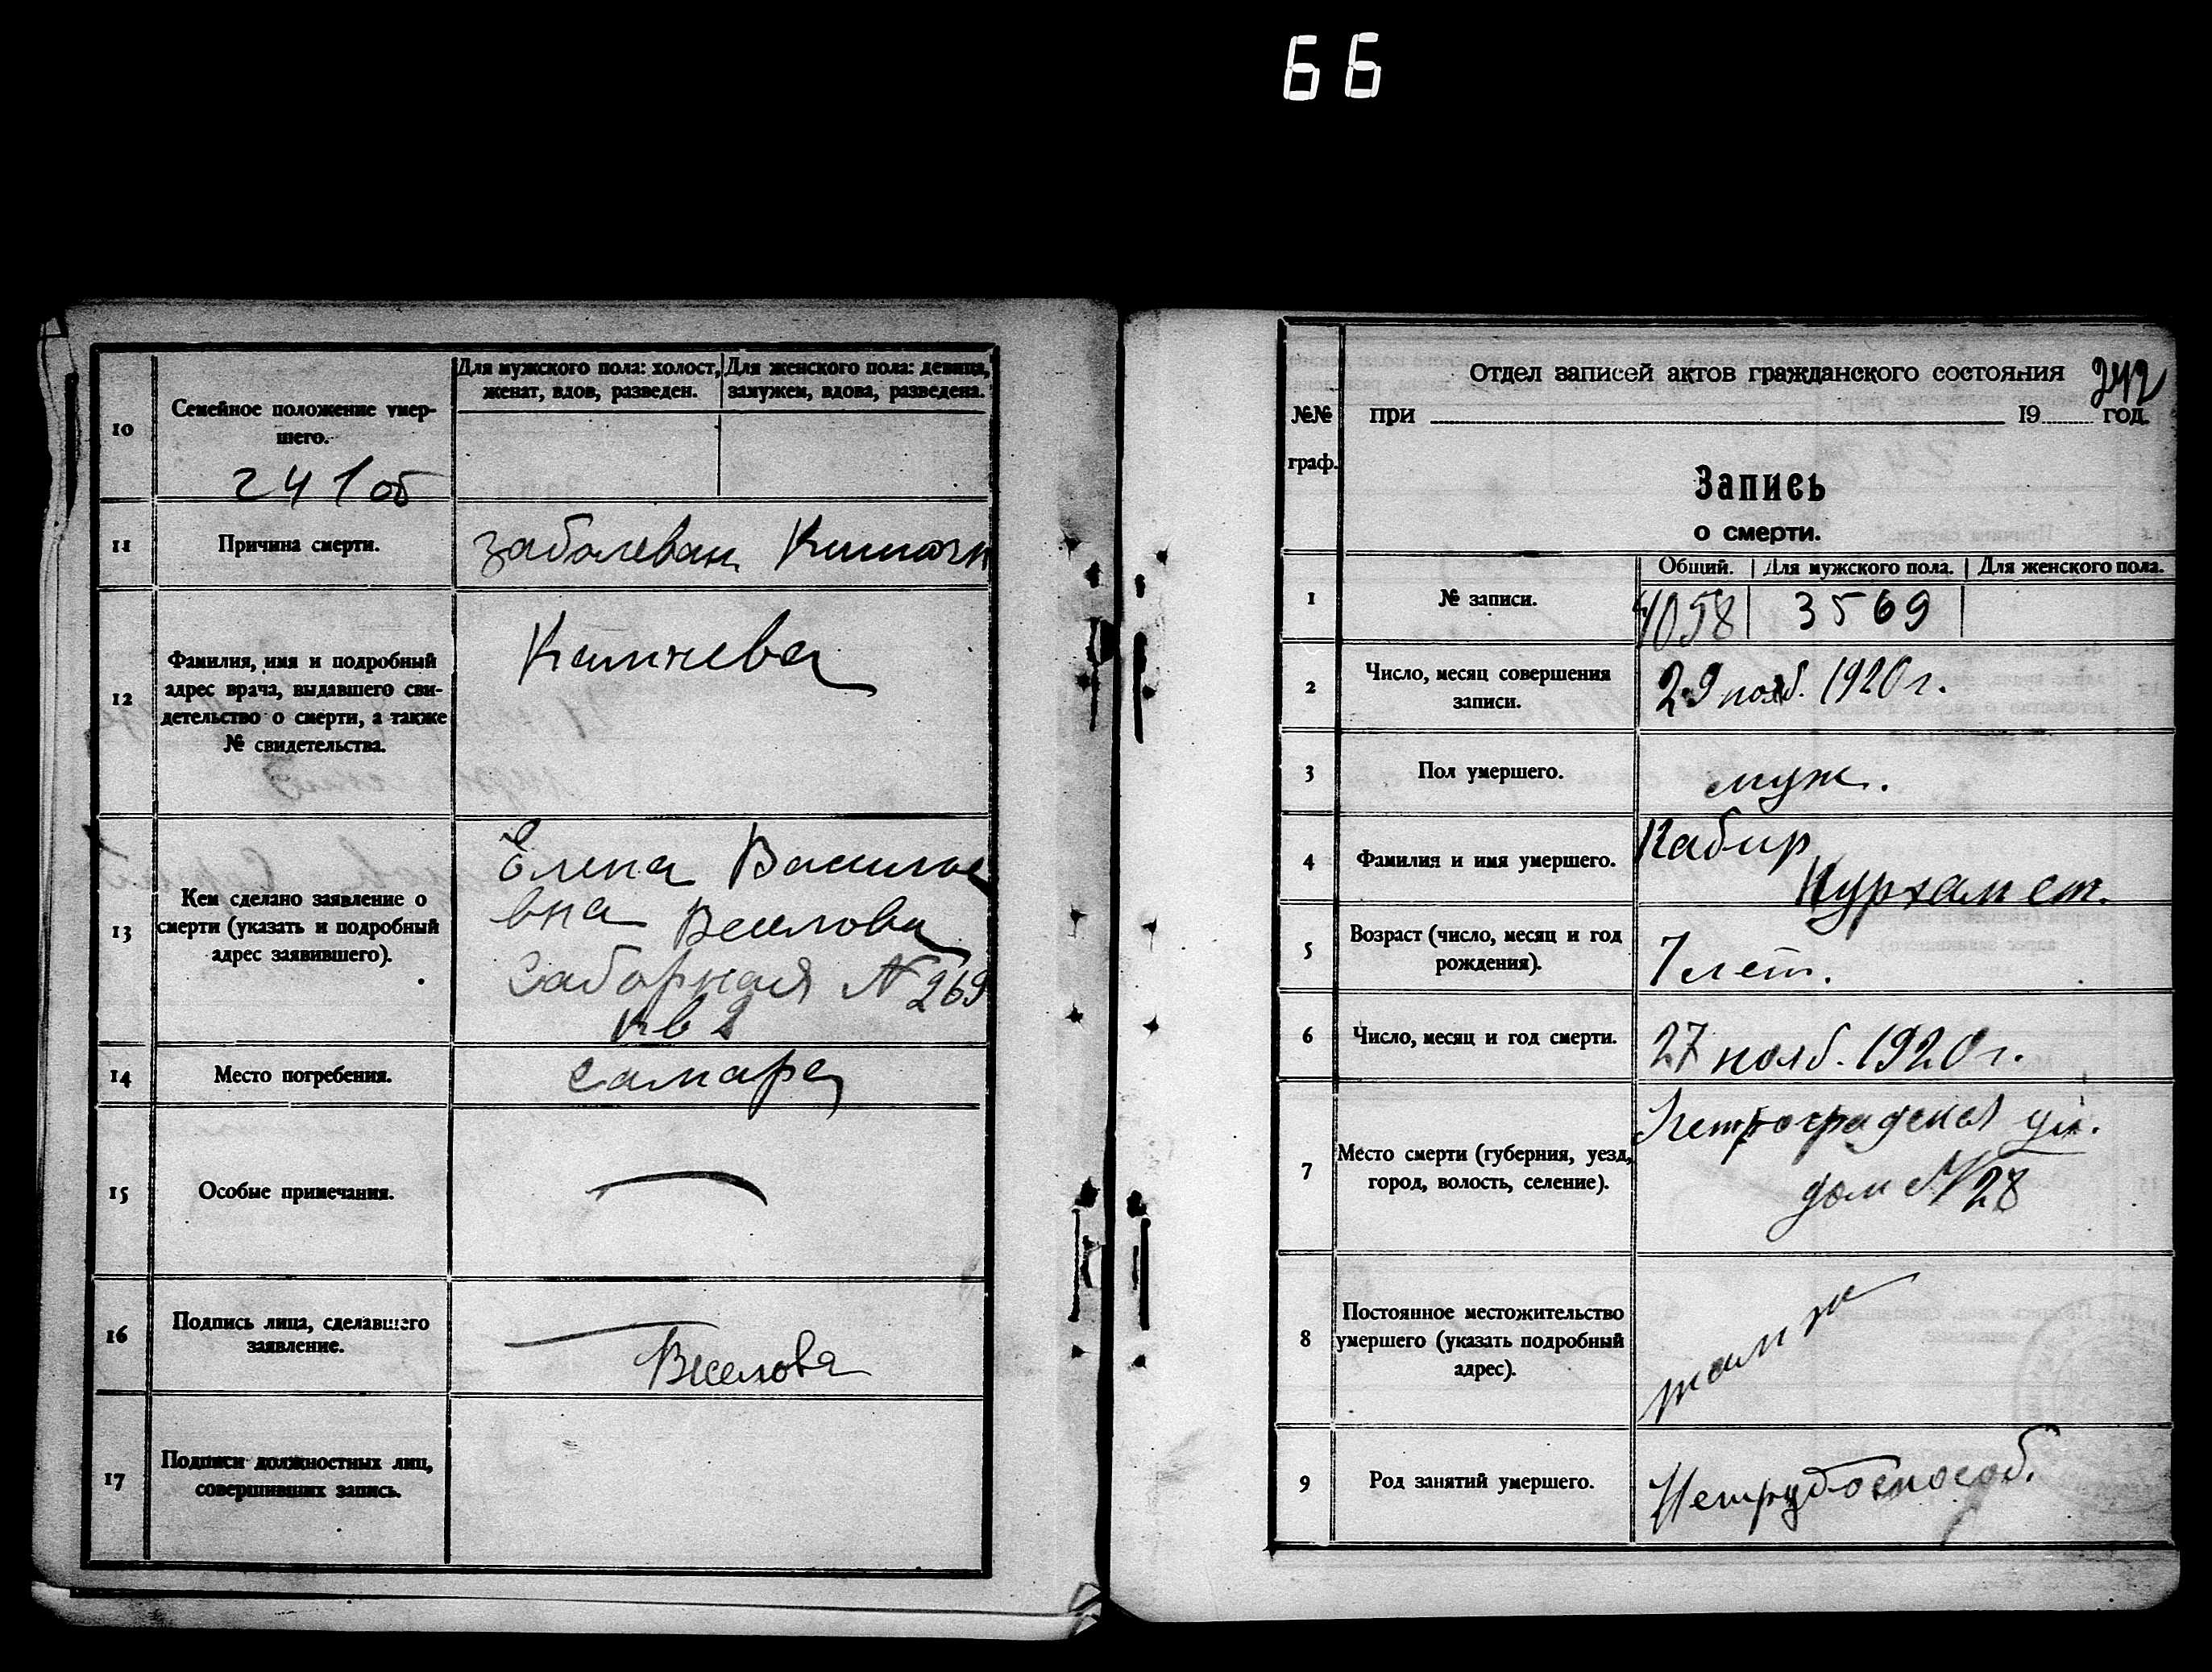 66
10
Семейное положение умер-
шего.
241об
Для мужского пола: холост,
женат, вдов, разведен.
Для женского пола: девица,
замужем, вдова, разведена.
11
Причина смерти.
заболеван Кишечн
12
Фамилия, имя и подробный
адрес врача, выдавшего сви-
детельство о смерти, а также
№ свидетельства.
13
Кем сделано заявление о
смерти (указать и подробный
адрес заявившего).
Елена Василье
вна Веселова
Саборная № 269
кв 2
14
Место погребения.
Самара
15
Особые примечания.
16
Подпись лица, сделавшего
заявление.
Веселова
17
Подписи должностных лиц,
совершивших запись.
242
№№
граф.
Отдел записей актов гражданского состояния
при 19 год.
Запись
о смерти.
Общий. Для мужского пола. Для женского пола.
1
№ записи.
4058 3569
2
Число, месяц совершения
записи.
29 нояб. 1920 г.
3
Пол умершего.
муж.
4
Фамилия и имя умершего.
Кабир
Нурхамет.
5
Возраст (число, месяц и год
рождения).
7 лет.
6
Число, месяц и год смерти.
27 нояб. 1920 г.
7
Место смерти (губерния, уезд,
город, волость, селение).
Петроградская ул.
дом № 28
8
Постоянное местожительство
умершего (указать подробный
адрес).
там ж
9
Род занятий умершего.
Нетрудоспособ.